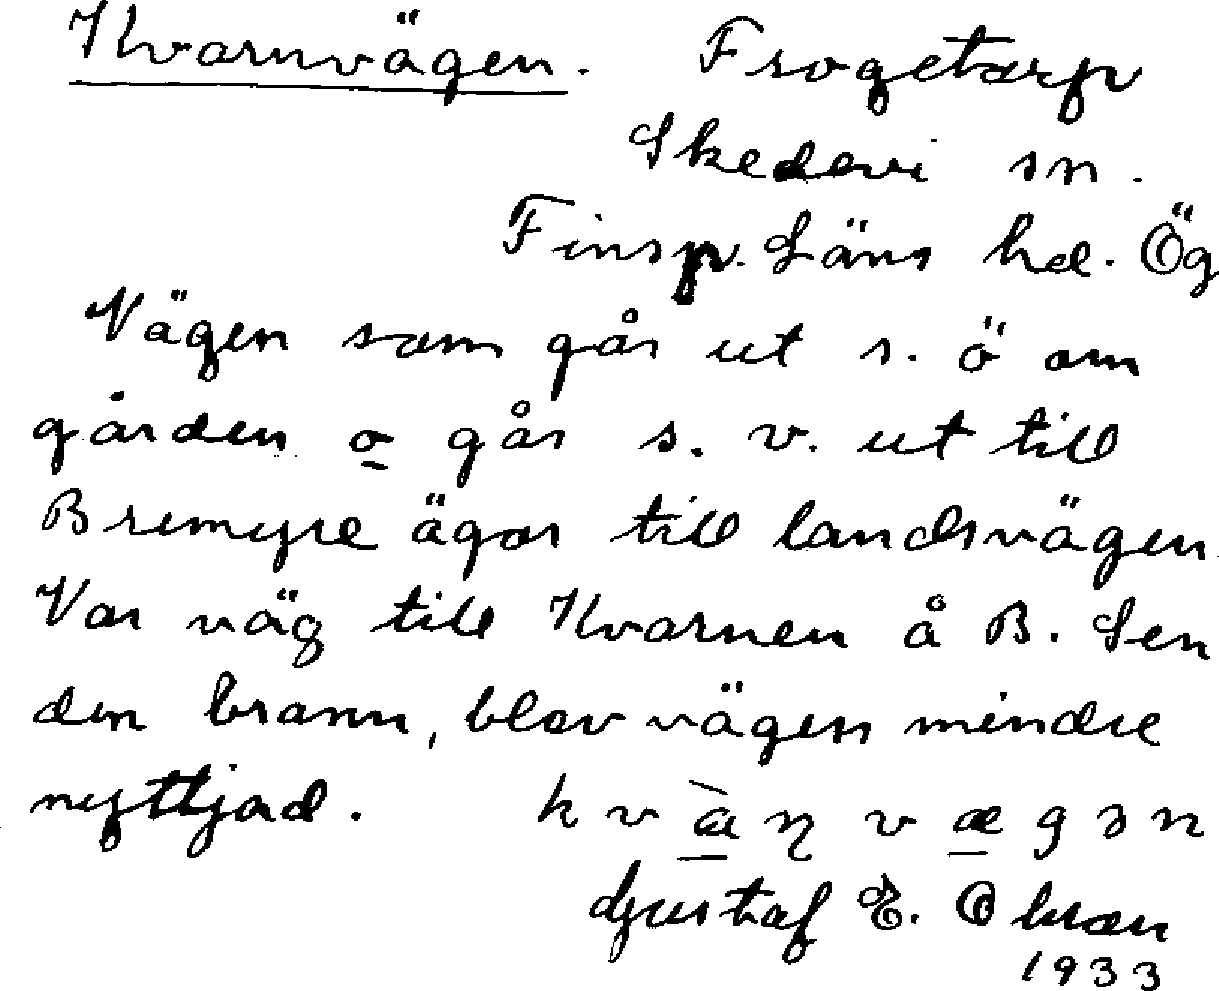 Kvarnvägen. Frogetorp
Skedevi sn.
Finsp. Läns hd. Ög
Vägen som går ut s. ö om
gården o går s. v. ut till
Bremyre ägor till landsvägen
Var väg till Kvarnen å B. Sen
den brann, blev vägen mindre
nyttjad. kvàɳvægən
Gustaf E.
1933